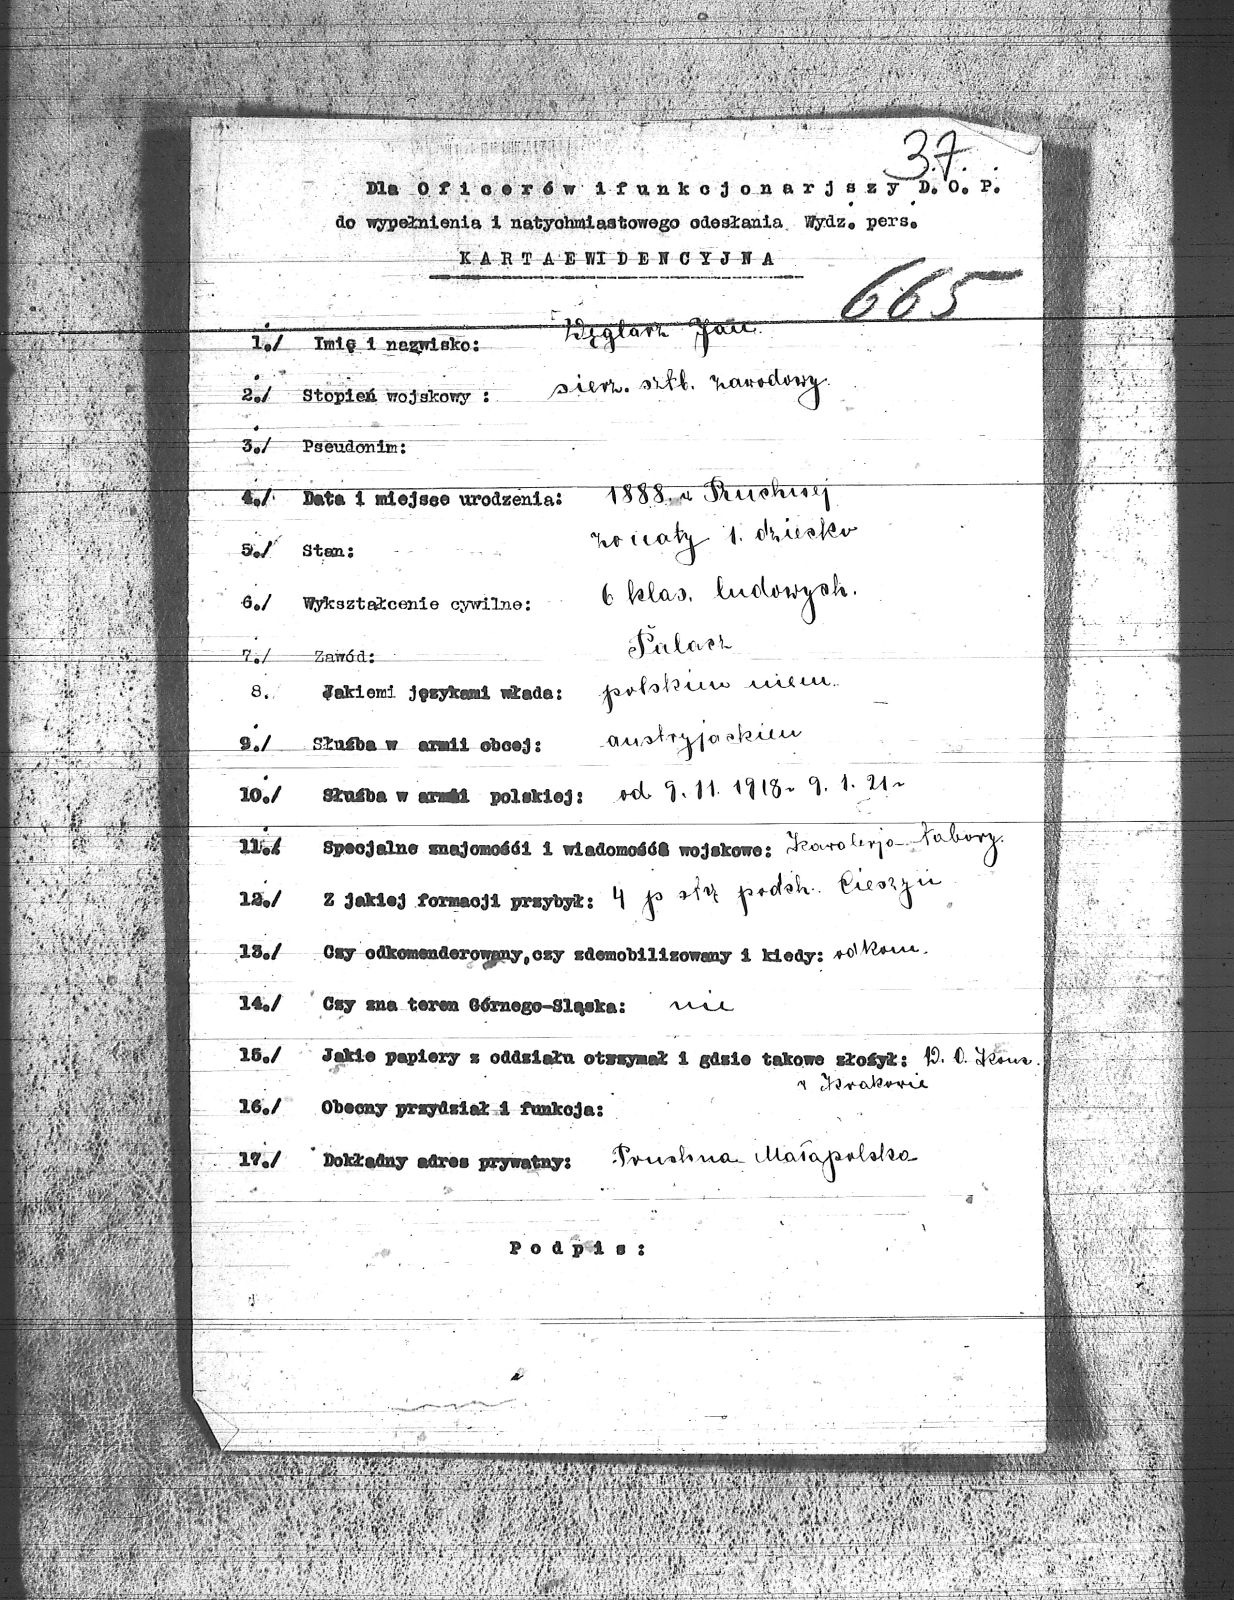 37.
Dla Oficerów i funkcjonarjszy D.O.P.
do wypełnienia i natychmiastowego odesłania Wydz. pers.
KARTA EWIDENCYJNA
665
1./ Imię i nazwisko: Węglarz Jan
2./ Stopień wojskowy : sierz. sztb. zawodowy.
3./ Pseudonim:
4./ Data i miejsce urodzenia: 1888 w
5./ Stan: żonaty 1. dziecko
6./ Wykształcenie cywilne: 6 klas. ludowych.
7./ Zawód: Palacz
8. Jakiemi językami włada: polskim niem.
9./ Służba w armii obcej: austryjackiem
10./ Służba w armii polskiej: od 9.11.1918 9.1.21
11./ Specjalne znajomośći i wiadomośći wojskowe: Kawalerja Tabory.
12./ Z jakiej formacji przybył: 4 p podh. Cieszyn
13./ Czy odkomenderowany,czy zdemobilizowany i kiedy: odkom.
14./ Czy zna teren Górnego-Sląska: nie
15./ Jakie papiery z oddziału otrzymał i gdzie takowe złożył: D. O.
w Krakowie
16./ Obecny przydział i funkcja:
17./ Dokładny adres prywatny: Małapolska
Podpis: